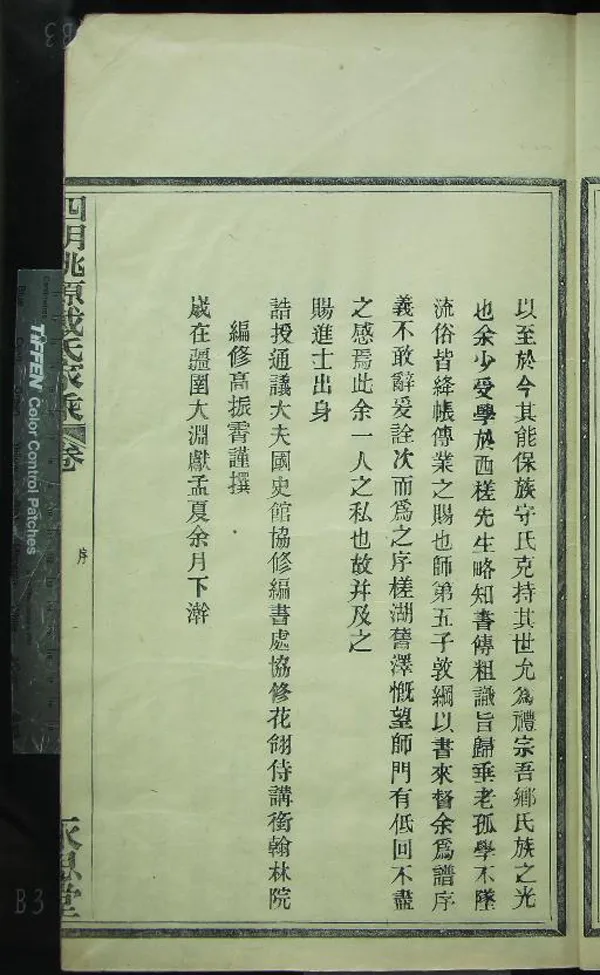 以至於今其能保族守氏克持其世允為禮宗吾鄉氏族之光
也余少受學於西槎先生略知書傳粗識旨歸垂老孤學不墜
流俗皆絳帳傳業之賜也師第五子敦綱以書來督余爲譜序
義不敢辭爰詮次而爲之序槎湖舊澤慨望師門有低回不盡
之感焉此余一人之私也故幷及之
賜進士出身
誥授通議大夫國史館協修編書處協修花翎侍講銜翰林院
編修高振霄謹撰
歲在彊圉大淵獻孟夏余月下澣
四明桃源戴氏家乘 卷
序
永思堂
TIFFEN Color Control Patches
B3
B3